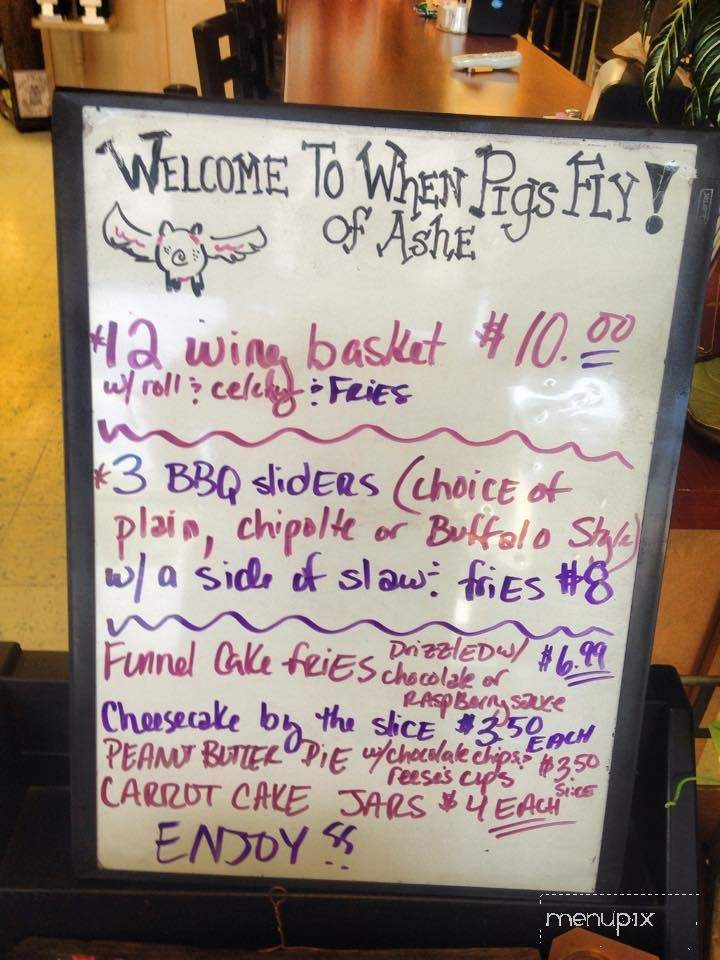 WELCOME TO WHEN PIGS FLY!
OF ASHE
*12 wing basket $10.00
w/ roll & celery & FRIES
*3 BBQ slidERS (choicE of
plain, chipolte or Buffalo Style)
w/ a side of slaw & friES $8
Funnel Cake friES DrizzlED w/ $6.99
chocolate or
RASpBerry sauce
Cheesecake by the slicE $3.50 EACH
PEANUT BUTTER PiE w/ chocolate chips & $3.50
reese's cups SlicE
CARROT CAKE JARS $4 EACH
ENJOY!!
menupix